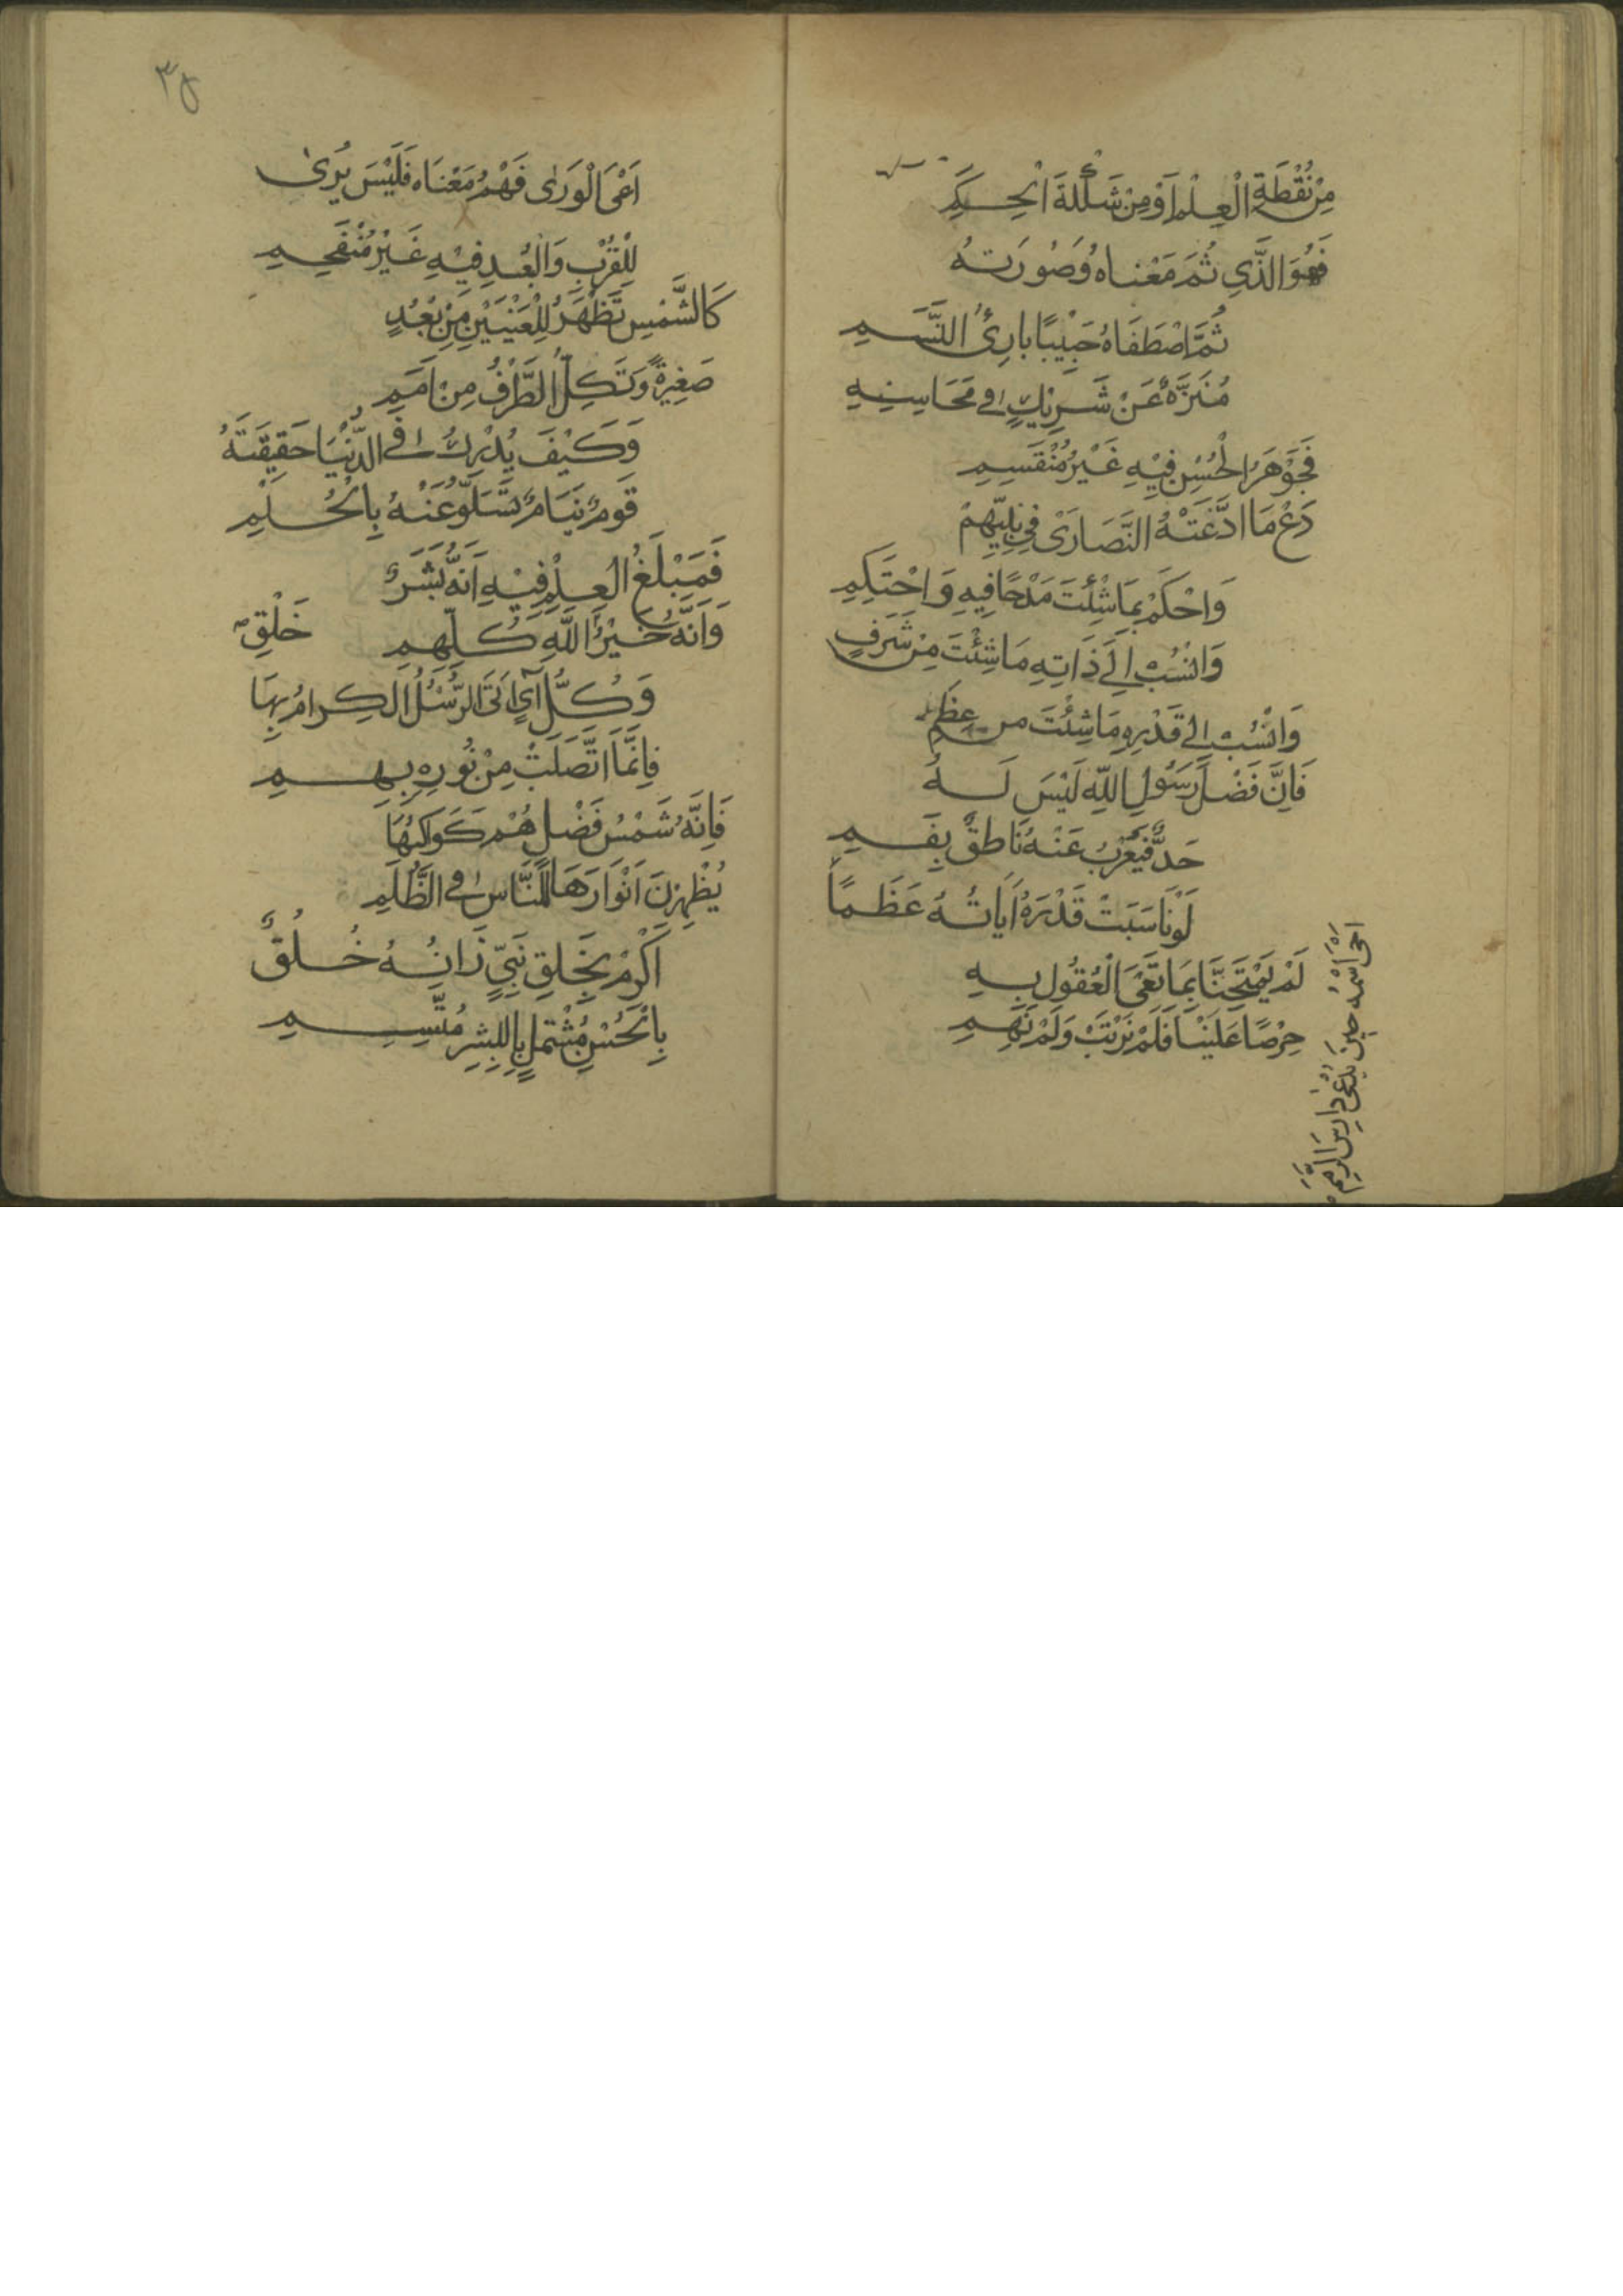 مِنْ نُقْطَةِ الْعِلْمِ اَوْ مِنْ شَكْلَةِ الْحِكَمِ
فَهُوَ الَّذِي تُمَ مَعْنَاهُ وَصُورَتهُ
ثُمَّ اصْطَفَاهُ حَبِيْبًا بارِئُ النَّسَمِ
مُنَزَّهٌ عَنْ شَرِيْكٍ فِي مَحَاسِنِهِ
فَجَوْهَرُ الْحُسْنِ فِيْهِ غَيْرُ مُنْقَسِمِ
دَعْ مَا ادَّعَتْهُ النَّصَارَىٰ فِي نَبِيِّهِمْ
وَاحْكَمْ بِمَا شِئْتَ مَدْحًا فِيهِ وَاحْتَكِمِ
وَانْسُبْ اِلَى ذَاتِهِ مَا شِئْتَ مِنْ شَرَفٍ
وَانْسُبْ الى قَدْرِهِ مَا شِئْتَ من عِظَمِ
فَاِنَّ فَضْلَ رَسُولِ اللّٰهِ لَيْسَ لَهُ
حَدٌّ فَيُعْرِبُ عَنْهُ نَاطِقٌ بِفَمِ
لَوْ نَاسَبَتْ قَدْرَهُ اَيَاتُهُ عَظَمًا
اَحْىَ اسْمُهُ حِيْنَ يُدْعٰى دَارِسَ الرِّمَمِ
لَمْ يَمْتَحِنَّا بِمَا تَعْىَ الْعُقُولُ بِهِ
حِرْصًا عَلَيْنَا فَلَمْ نَرْتَبْ وَلَمْ نَهِمِ
٣٥
اَعْىَ الْوَرٰى فَهْمُ مَعْنَاه فَلَيْسَ يُرىٰ
لِلْقُرْبِ وَالْبُعْدِ فِيْهِ غَيْرُ مُنْفَحِمِ
كَالشَّمْسِ تَظْهَرُ لِلْعَيْنَيْنِ مِنْ بُعُدٍ
صَغِيْرَةً وَتَكِلُّ الطَّرْفُ مِنْ اَمَمِ
وَكَيْفَ يُدْرِكُ فِي الدُّنْيَا حَقِيقَتَهُ
قَوْمٌ نِيَامٌ تَسَلَّوْ عَنْهُ بِالْحُلُمِ
فَمَبْلَغُ الْعِلْمِ فِيْهِ اَنَّهُ بَشَرٌ
وَاَنَّهُ خَيْرُ خَلْقِ اللّٰهِ كُلِّهِمِ
وَكُلُّ آيٍ اَتَى الرُّسُلُ الْكِرامُ بِهَا
فَاِنَّمَا اتَّصَلَتْ مِنْ نُورِهِ بِهِمِ
فَاِنَّهُ شَمْسُ فَضْلٍ هُمْ كَوَاكِبُهَا
يُظْهِرْنَ اَنْوَارَهَا لِلنَّاسِ فِي الظُّلَمِ
اَكْرِمْ بِخَلْقِ نَبِيٍّ زَانَهُ خُلُقٌ
بِالْحُسْنِ مُشْتَمِلٍ بِالْبِشْرِ مُتَّسِمِ